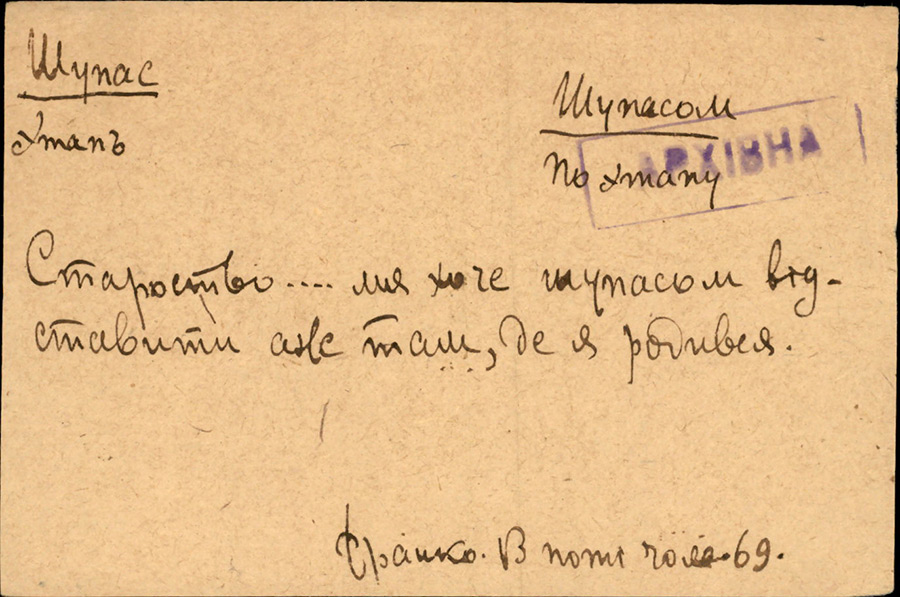 Шупас
Этапъ
Шупасом
По этапу
АРХІВНА
Староство.... мя хоче шупасом від-
ставити аже там, де я родився.
Франко. В поті чола. 69.